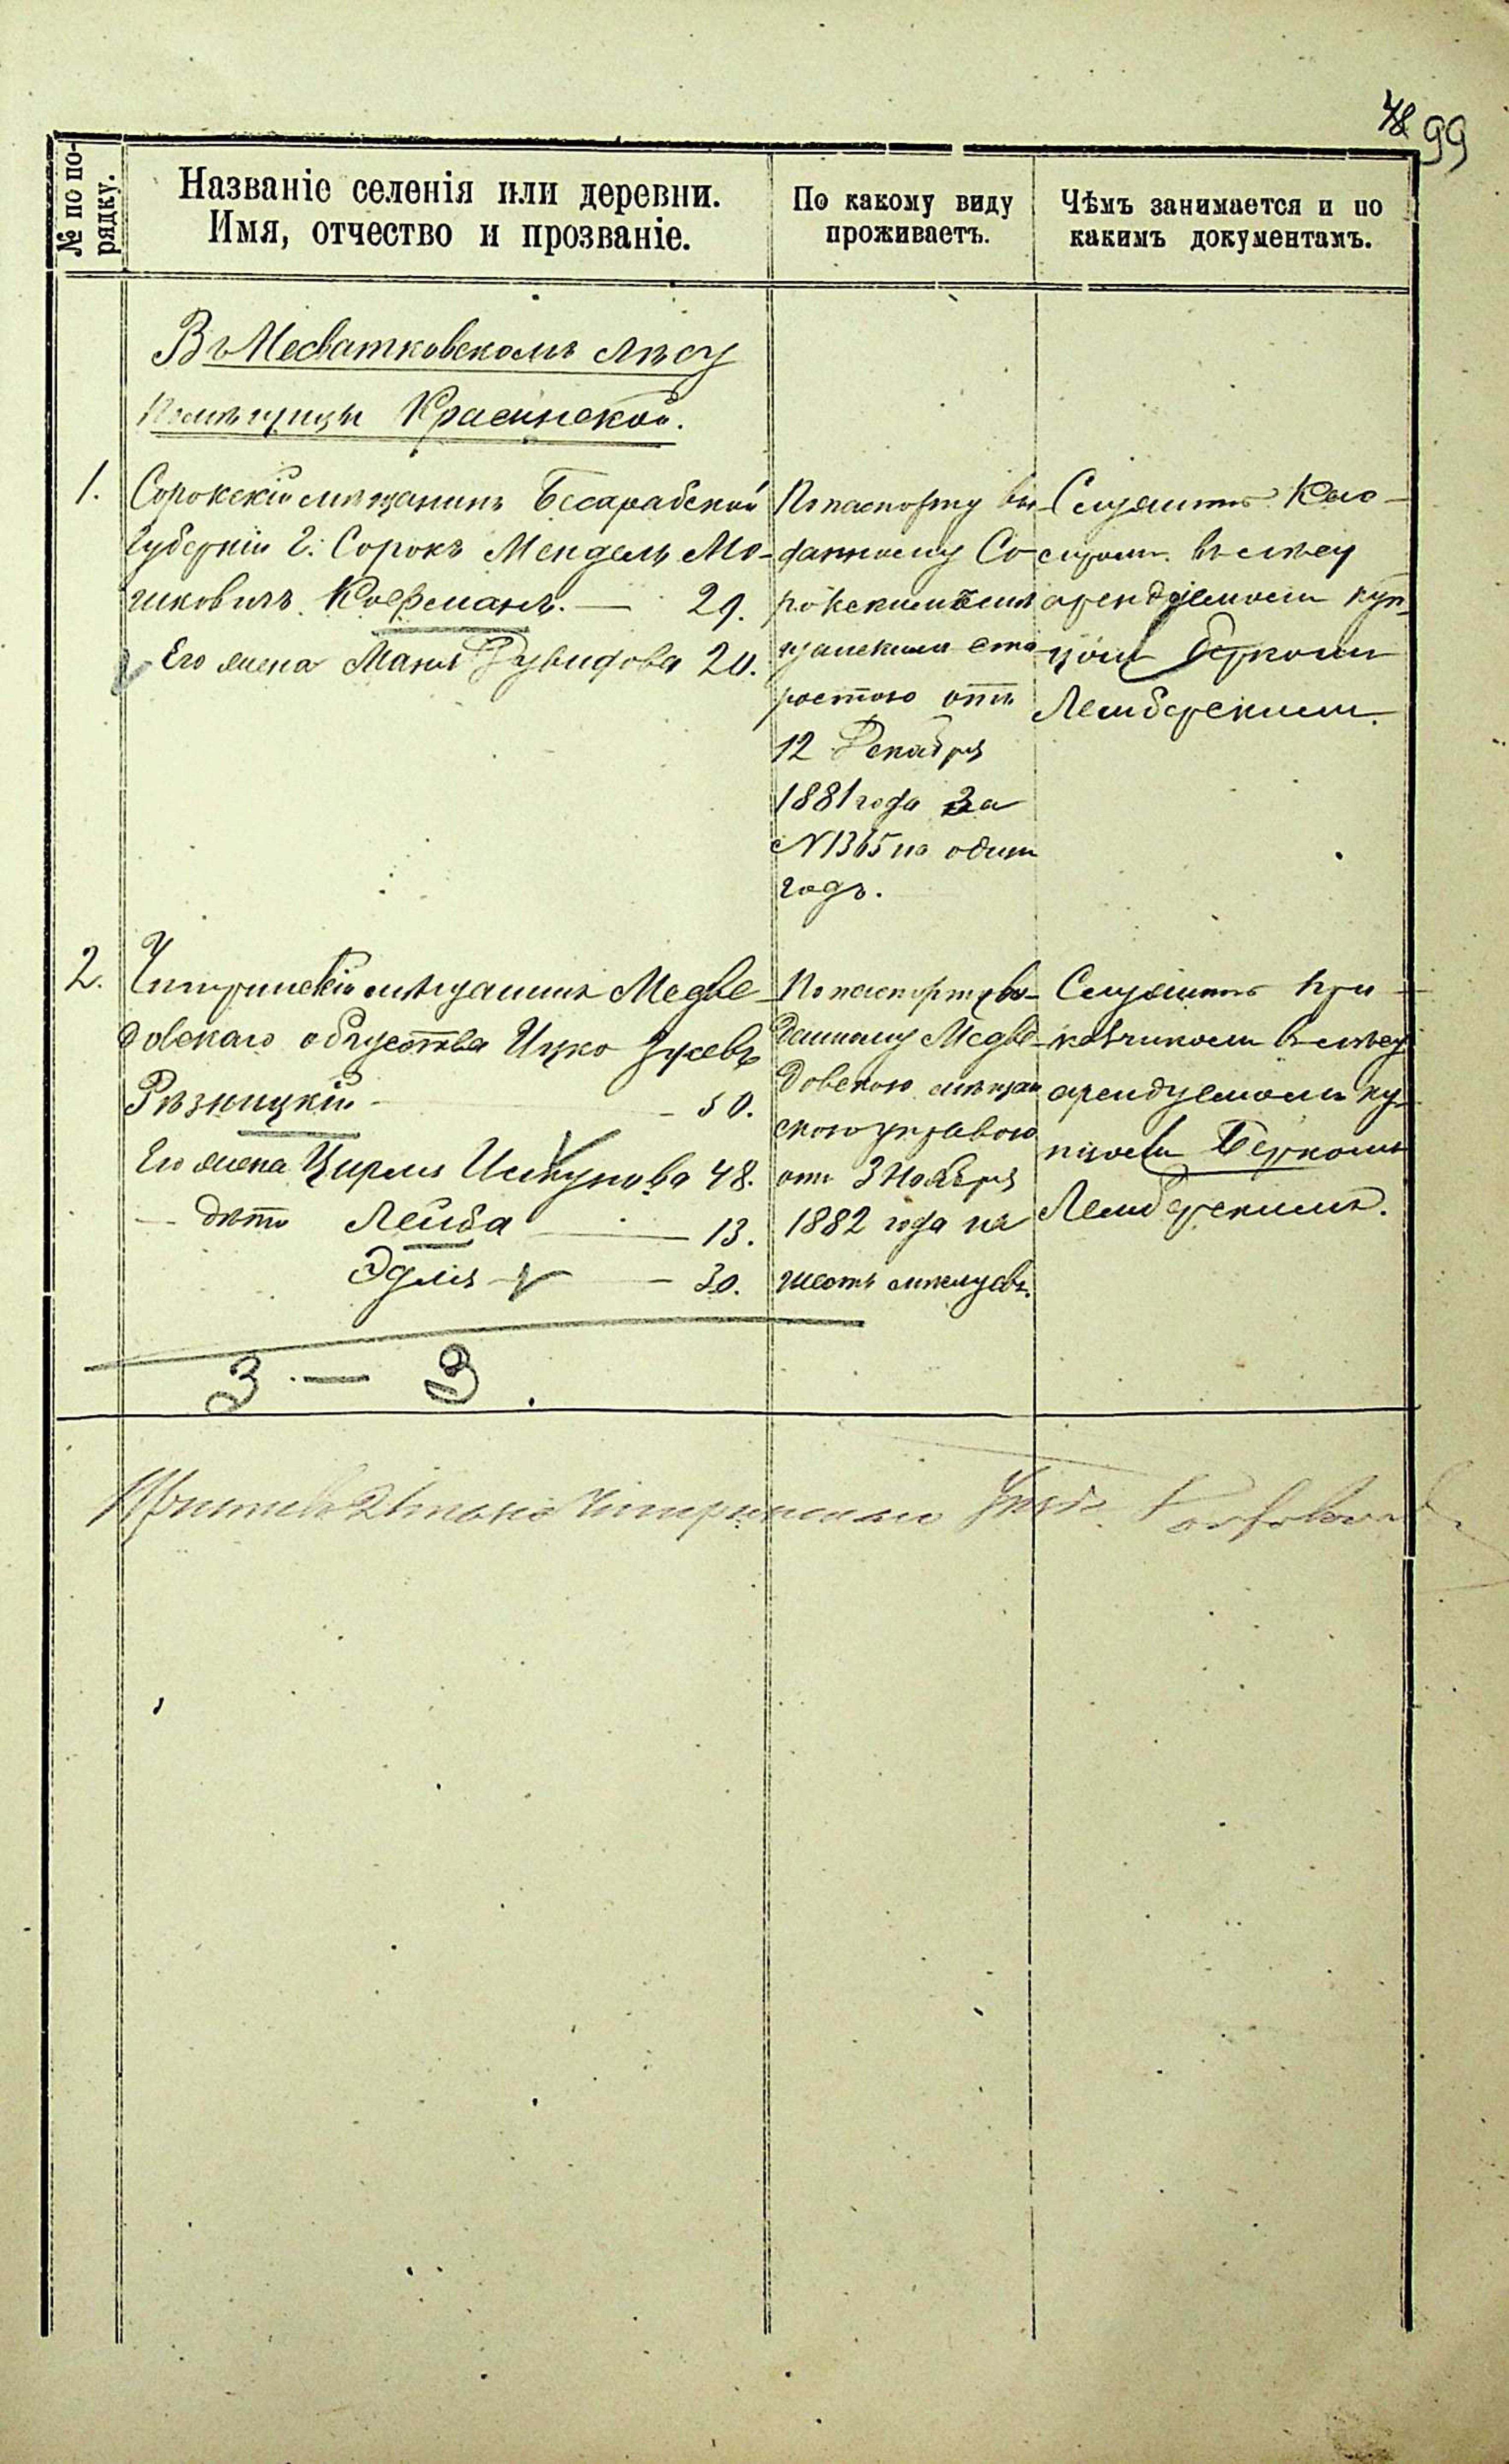 99
№ по по-
рядку.
Названіе селенія или деревни.
Имя, отчество и прозваніе.
По какому виду
проживаетъ.
Чѣмъ занимается и по
какимъ документамъ.
Въ Месватковскомъ лѣсу
Помѣщицы Красинской.
1.
Сорокскій мѣщанинъ Бесарабской
Губерніи г. Сорокъ Мендель Мо-
шковичъ Кофманъ. — 29.
Его жена Маня Рувидова 20.
По паспорту вы-
данному Со-
рокскимъ мѣ-
щанскимъ ста
ростою отъ
12 Декабря
1881 года За
№ 1365 на одинъ
годъ.
Служитъ Кас-
сиромъ въ лѣсу
арендуемомъ куп-
цомъ Беркомъ
Лембергскимъ.
2.
Чигиринскій мѣщанинъ Медве-
довскаго общества Ицко Зусевъ
Рѣзницкій — 50.
Его жена Цирля Ицкунова 48.
— дѣти Лейба — 13.
Эдля — 30.
По паспорту вы-
данному Медве-
довскою мѣщан
скою управою
отъ 3 Ноября
1882 года на
шесть мѣсяцевъ.
Служитъ при-
кащикомъ въ лѣсу
арендуемомъ ку-
пцомъ Беркомъ
Лембергскимъ.
3 — 3.
Приставъ 2 Стана Чигиринскаго Уѣзда